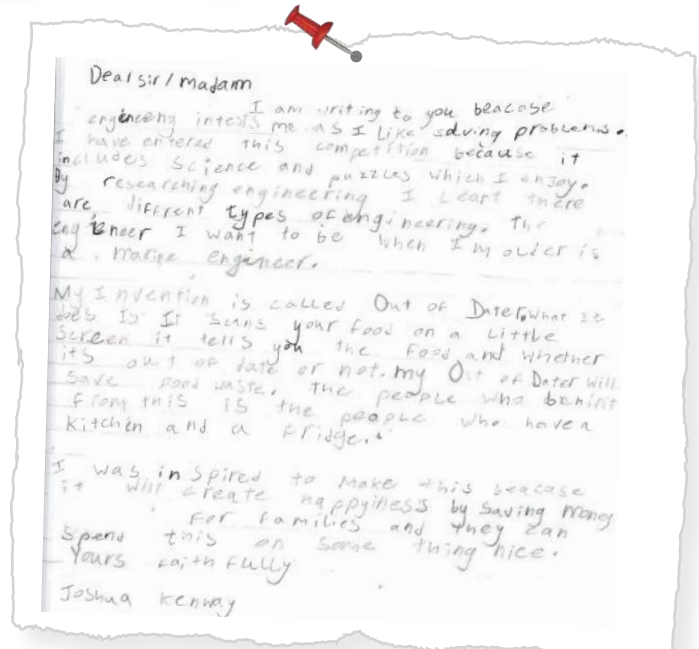 Dear sir/madam
I am writing to you beacase
engineeng intests me as I like solving problems.
I have entered this competition because it
includes science and puzzles which I enjoy.
By researching engineering I leart there
are diffrent types of engineering. The
engineer I want to be when I'm older is
a marine engineer.
My Invention is called Out of Dater. What it
does Is It scans your food on a little
screen it tells you the food and whether
its out of date or not. my Out of Dater will
save food waste. The people who benifit
from this is the people who have a
kitchen and a fridge.
I was inspired to make this beacase
it will create happyiness by saving money
for families and they can
spend this on some thing nice.
Yours faithfully
Joshua Kenway